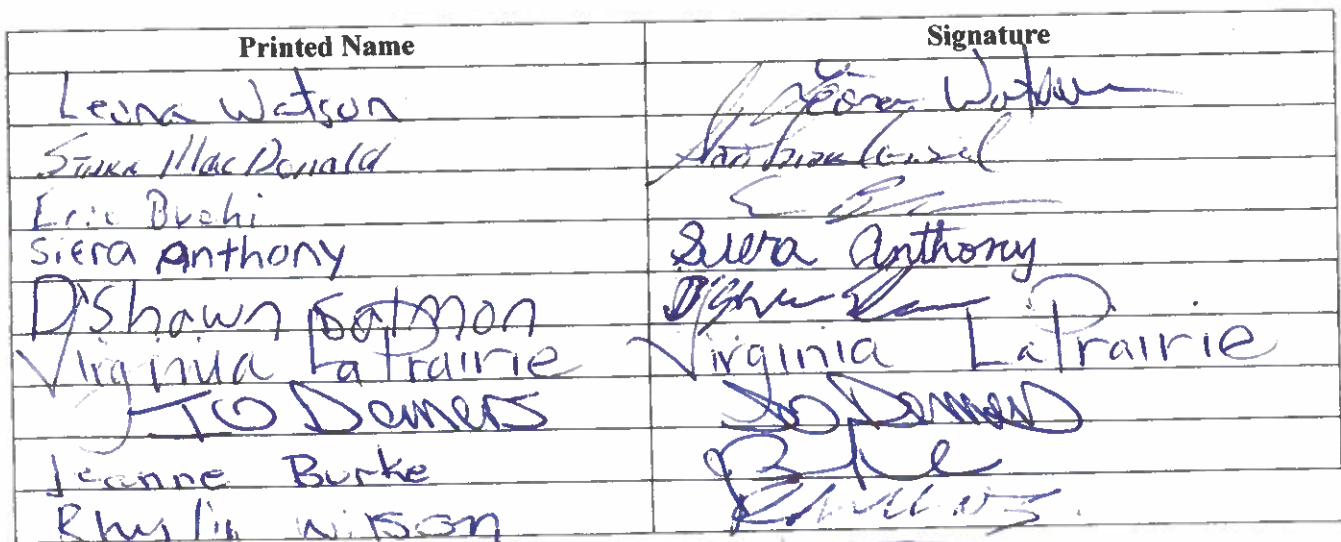 Printed Name Signature
Leona Watson Leona Watson
MacDonald
Eric
Siera Anthony Siera Anthony
D'Shawn D'Shawn
Virginia LaPrairie Virginia LaPrairie
JO Demers Jo Demers
Jeanne Burke
Wilson